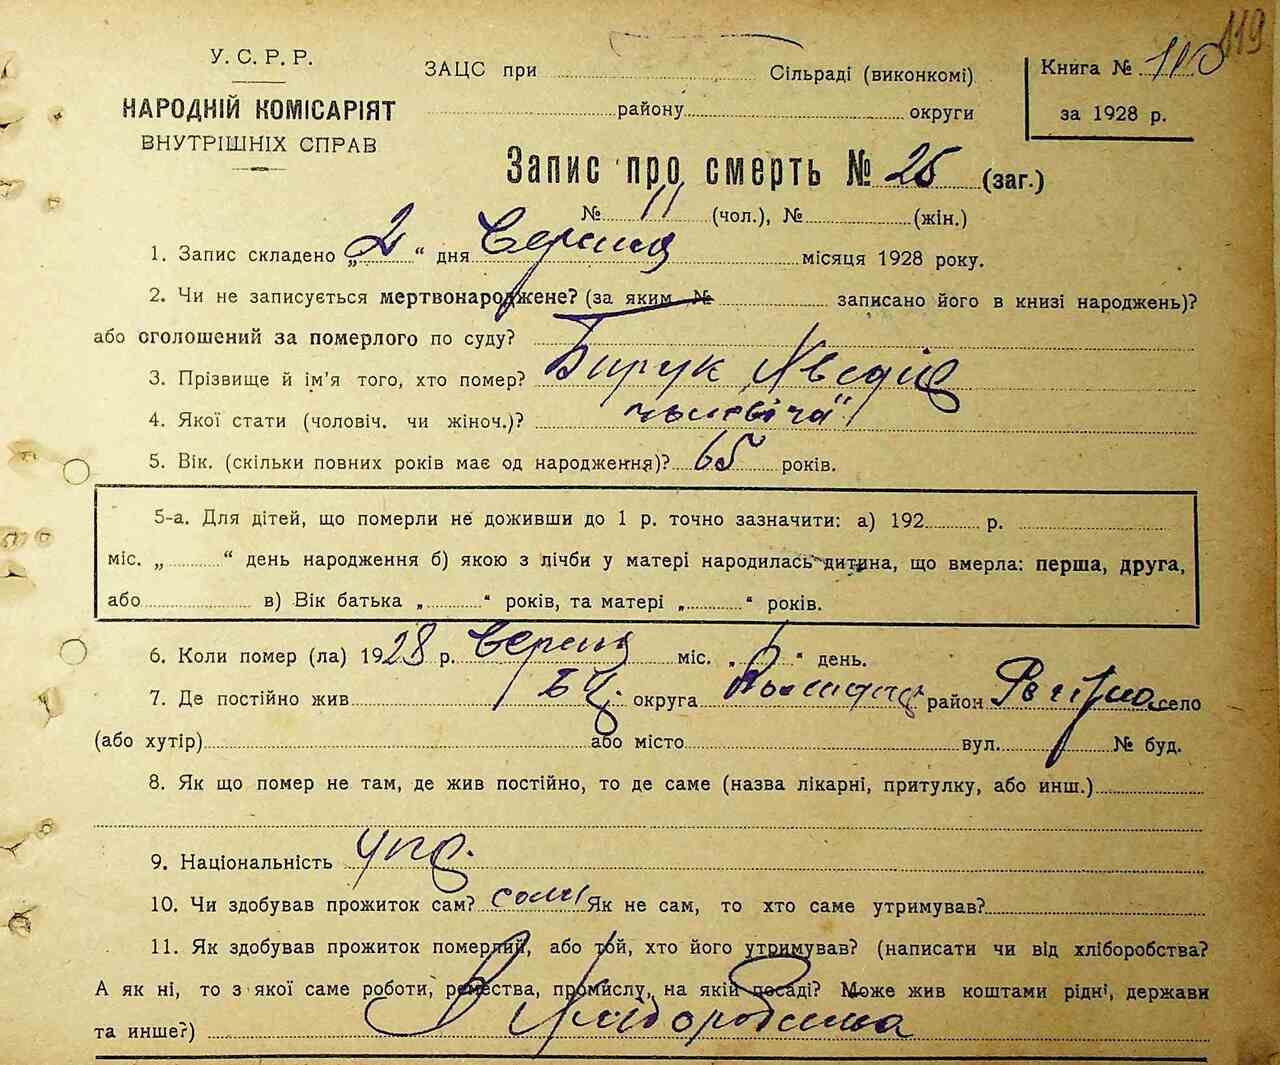 119
У. С. Р. Р.
НАРОДНІЙ КОМІСАРІЯТ
ВНУТРІШНІХ СПРАВ
ЗАЦС при Сільраді (виконкомі)
району округи
Книга №
за 1928 р.
Запис про смерть № 25 (заг.)
№ 11 (чол.), № (жін.)
1. Запис складено „2“ дня Вересня місяця 1928 року.
2. Чи не записується мертвонароджене? (за яким № записано його в книзі народжень)?
або оголошений за померлого по суду?
3. Прізвище й ім'я того, хто помер? Бирук Явдоким
4. Якої стати (чоловіч. чи жіноч.)?
5. Вік. (скільки повних років має од народження)? 65 років.
5-а. Для дітей, що померли не доживши до 1 р. точно зазначити: а) 192 р.
міс. „ “ день народження б) якою з лічби у матері народилась дитина, що вмерла: перша, друга,
або в) Вік батька „ “ років, та матері „ “ років.
6. Коли помер (ла) 1928 р. Вересня міс. „ “ день.
7. Де постійно жив БЦ. округа район село
(або хутір) або місто вул. № буд.
8. Як що помер не там, де жив постійно, то де саме (назва лікарні, притулку, або инш.)
9. Національність укр.
10. Чи здобував прожиток сам? сам Як не сам, то хто саме утримував?
11. Як здобував прожиток померлий, або той, хто його утримував? (написати чи від хліборобства?
А як ні, то з якої саме роботи, ремества, промислу, на якій посаді? Може жив коштами рідні, держави
та инше?) Хліборобства